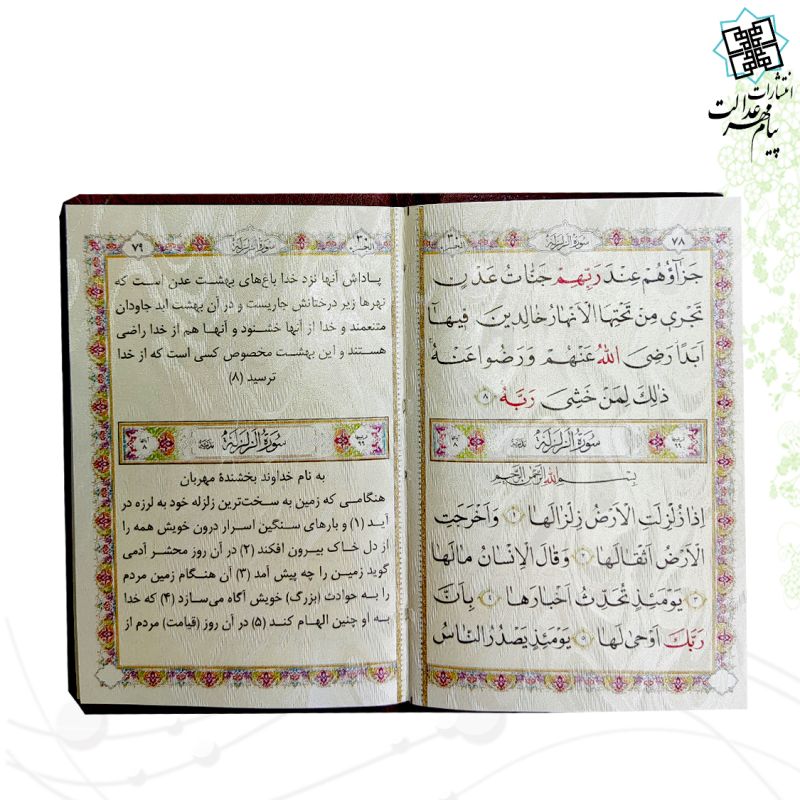 انتشارات
پیام مهر عدالت
۷۸
سورة الزلزلة
جَزَآؤُهُمْ عِنْدَ رَبِّهِمْ جَنَّاتُ عَدْنٍ
تَجْرِی مِنْ تَحْتِهَا الْاَنْهَارُ خَالِدِینَ فِیهَآ
اَبَدًا رَضِیَ اللهُ عَنْهُمْ وَرَضُوا عَنْهُ
ذٰلِكَ لِمَنْ خَشِیَ رَبَّهُ ۸
سورة الزلزلة مدنیة
بسم الله الرحمن الرحیم
اِذَا زُلْزِلَتِ الْاَرْضُ زِلْزَالَهَا ۱ وَاَخْرَجَتِ
الْاَرْضُ اَثْقَالَهَا ۲ وَقَالَ الْاِنْسَانُ مَالَهَا
۳ یَوْمَئِذٍ تُحَدِّثُ اَخْبَارَهَا ۴ بِاَنَّ
رَبَّكَ اَوْحٰی لَهَا ۵ یَوْمَئِذٍ یَصْدُرُ النَّاسُ
۷۹
سورة الزلزلة
پاداش آنها نزد خدا باغ‌های بهشت عدن است که
نهرها زیر درختانش جاریست و در آن بهشت ابد جاودان
متنعمند و خدا از آنها خشنود و آنها هم از خدا راضی
هستند و این بهشت مخصوص کسی است که از خدا
ترسید (۸)
سورة الزلزلة مدنیة
به نام خداوند بخشندهٔ مهربان
هنگامی که زمین به سخت‌ترین زلزله خود به لرزه در
آید (۱) و بارهای سنگین اسرار درون خویش همه را
از دل خاک بیرون افکند (۲) در آن روز محشر آدمی
گوید زمین را چه پیش آمد (۳) آن هنگام زمین مردم
را به حوادث (بزرگ) خویش آگاه می‌سازد (۴) که خدا
به او چنین الهام کند (۵) در آن روز (قیامت) مردم از